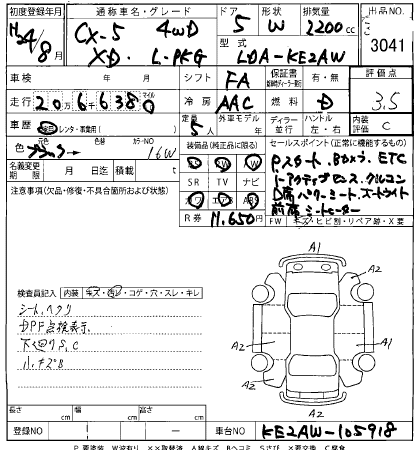 初度登録年月 通称車名・グレード ドア 形状 排気量 出品NO.
H24/8月 CX-5 4WD 5 W 2200cc 3041
XD. L-PKG 型式 LDA-KE2AW
車検 年 月 シフト FA 保証書 有・無 評価点
走行 206638.0 マイル 冷房 AAC 燃料 D 3.5
車歴 レンタ・事業用 定員 5人 外車モデル ディーラー 並行 ハンドル 左・右 内装 C
色 元色 ブラック 色替 カラーNO 16W 装備品(純正品に限る) セールスポイント(正常に機能するもの)
名義変更期限 月 日迄 積載 t SR TV ナビ
Pスタート. Bカメラ. ETC
D席パワーシート.オートライト
前席シートヒーター
注意事項(欠品・修復・不具合箇所および状態) カワ エアB ABS
R券 11,650円 FW キズ・ヒビ割・リペア跡・X要
検査員記入 内装 キズ・汚レ・コゲ・穴・スレ・キレ
シートヘタリ
DPF点検表示
下廻りS,C
小キズB
A1
A2
A2
A2
A1
A2
A2
長さ cm 幅 cm 高さ cm
登録NO 車台NO KE2AW-105918
P要塗装 W波有り XX取替済 A線キズ Bヘコミ Sさび X要交換 C腐食